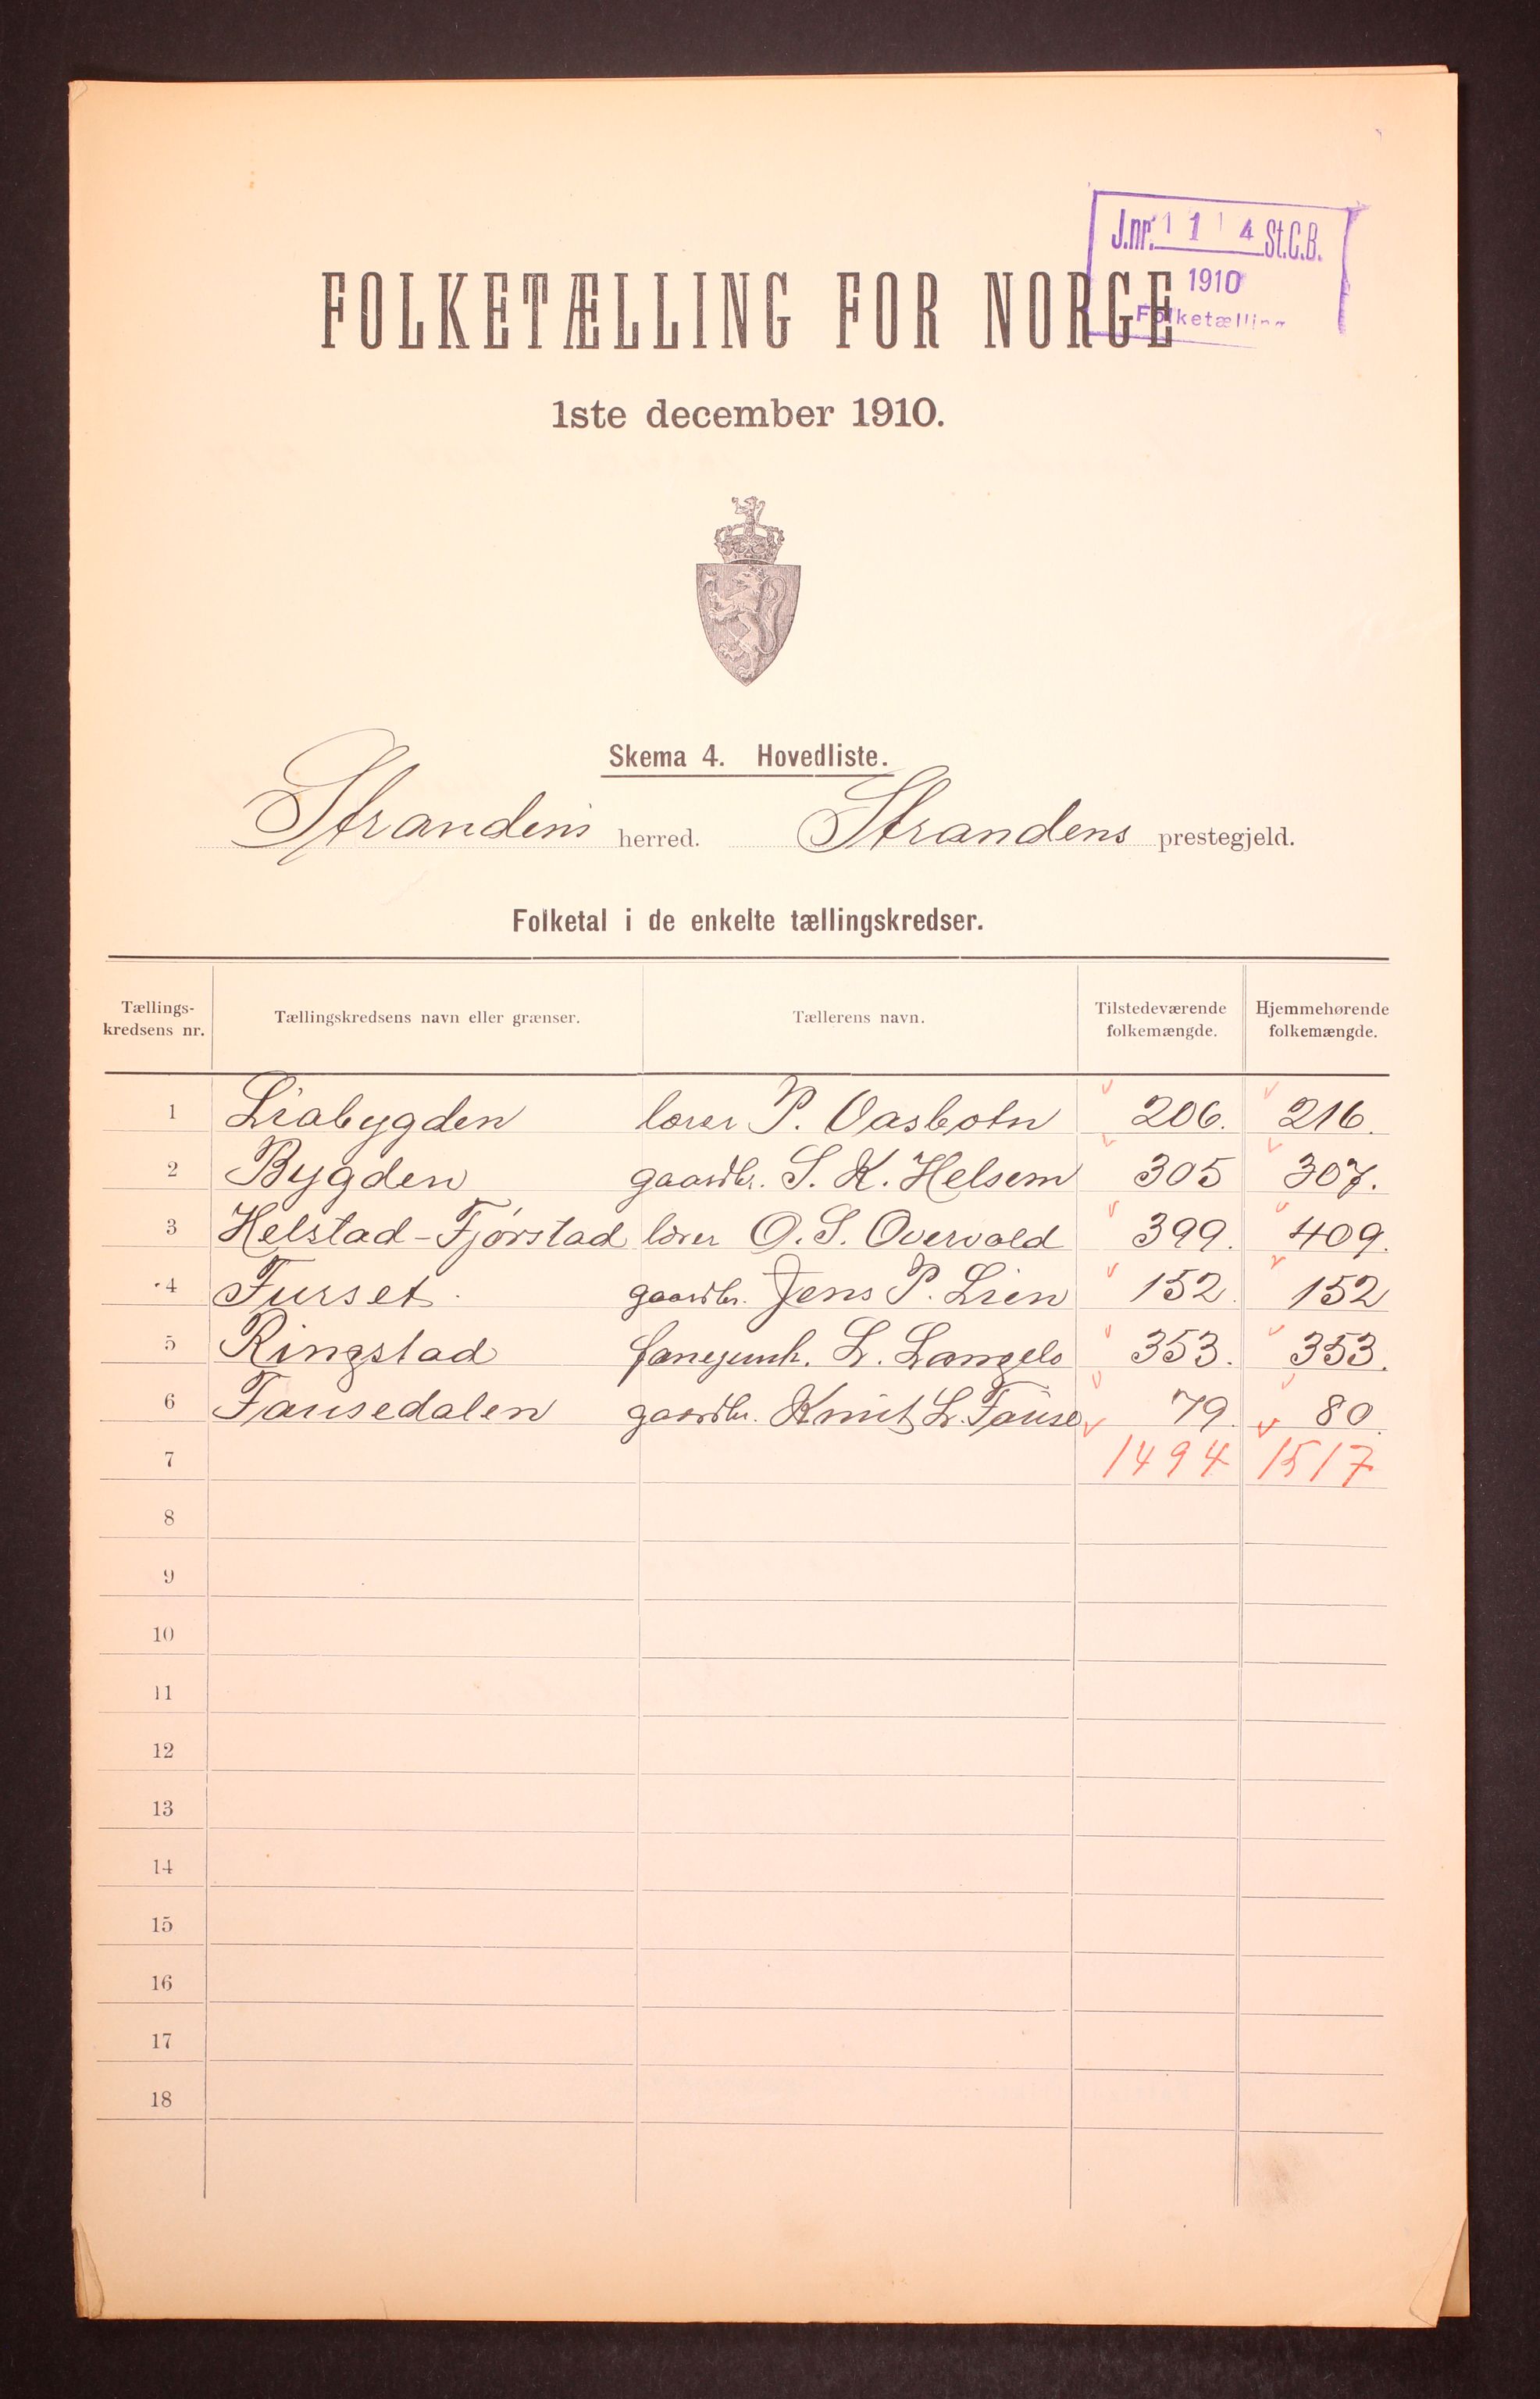 J.nr. 1 1 4 St.C.B.
1910
Folketælling
FOLKETÆLLING FOR NORGE
1ste december 1910.
Skema 4. Hovedliste.
Strandens herred. Strandens prestegjeld.
Folketal i de enkelte tællingskredser.
Tællings-kredsens nr. Tællingskredsens navn eller grænser. Tællerens navn. Tilstedeværende folkemængde. Hjemmehørende folkemængde.
1 Liabygden lærer P. Vasbotn 206. 216.
2 Bygden gaardbr. S. K. Helsem 305 307.
3 Helstad-Fjørstad lærer O. S. Overvold 399. 409.
4 Furset gaardbr. Jens P. Lien 152. 152
5 Ringstad fanejunk. L. Langelo 353. 353.
6 Fausedalen gaardbr. Knut L. Fause 79. 80.
7 1494 1517
8
9
10
11
12
13
14
15
16
17
18